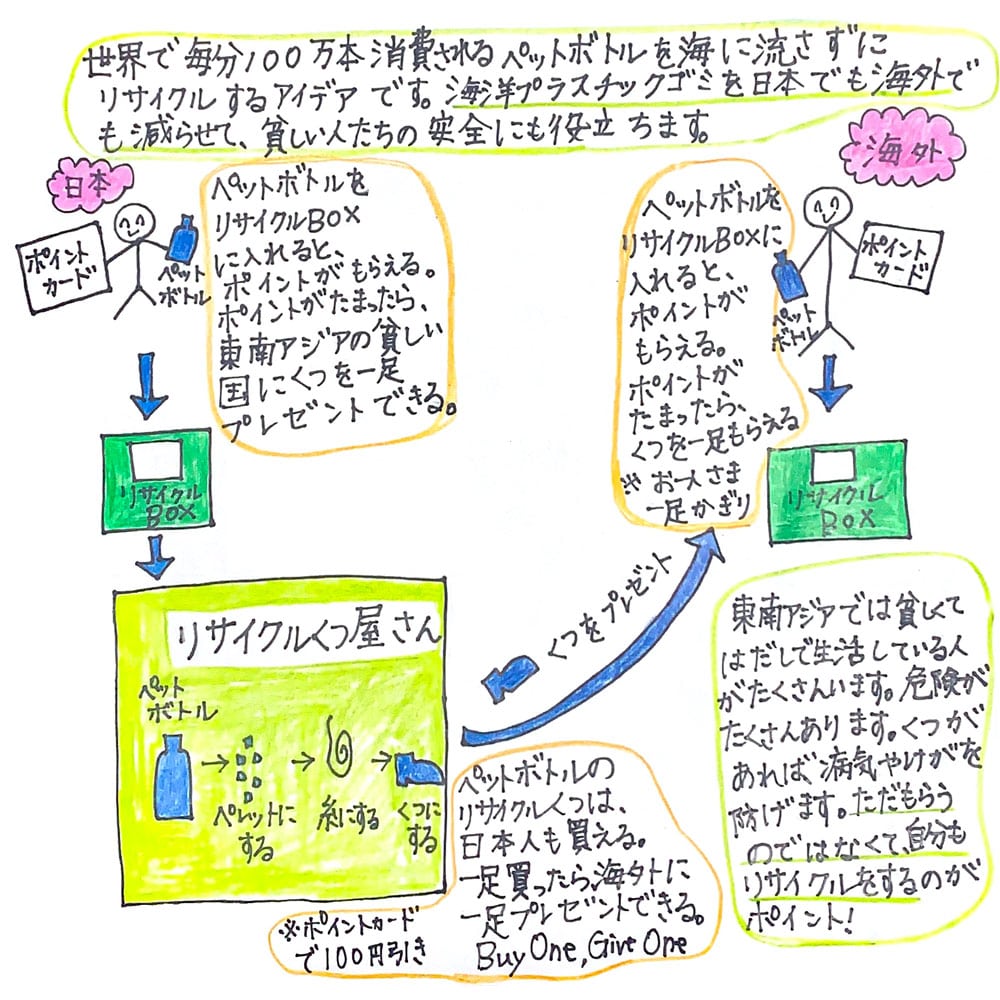 世界で毎分100万本消費されるペットボトルを海に流さずに
リサイクルするアイデアです。海洋プラスチックゴミを日本でも海外で
も減らせて、貧しい人たちの安全にも役立ちます。
日本
ポイント
カード
ペット
ボトル
ペットボトルを
リサイクルBOX
に入れると、
ポイントがもらえる。
ポイントがたまったら、
東南アジアの貧しい
国にくつを一足
プレゼントできる。
リサイクル
BOX
海外
ポイント
カード
ペット
ボトル
ペットボトルを
リサイクルBOXに
入れると、
ポイントが
もらえる。
ポイントが
たまったら、
くつを一足もらえる
※お一人さま
一足かぎり
リサイクル
BOX
リサイクルくつ屋さん
ペット
ボトル
→
ペレットに
する
→
糸にする
→
くつに
する
くつをプレゼント
ペットボトルの
リサイクルくつは、
日本人も買える。
一足買ったら、海外に
一足プレゼントできる。
Buy One, Give One
※ポイントカード
で100円引き
東南アジアでは貧しくて
はだしで生活している人
がたくさんいます。危険が
たくさんあります。くつが
あれば、病気やけがを
防げます。ただもらう
のではなくて、自分も
リサイクルをするのが
ポイント!